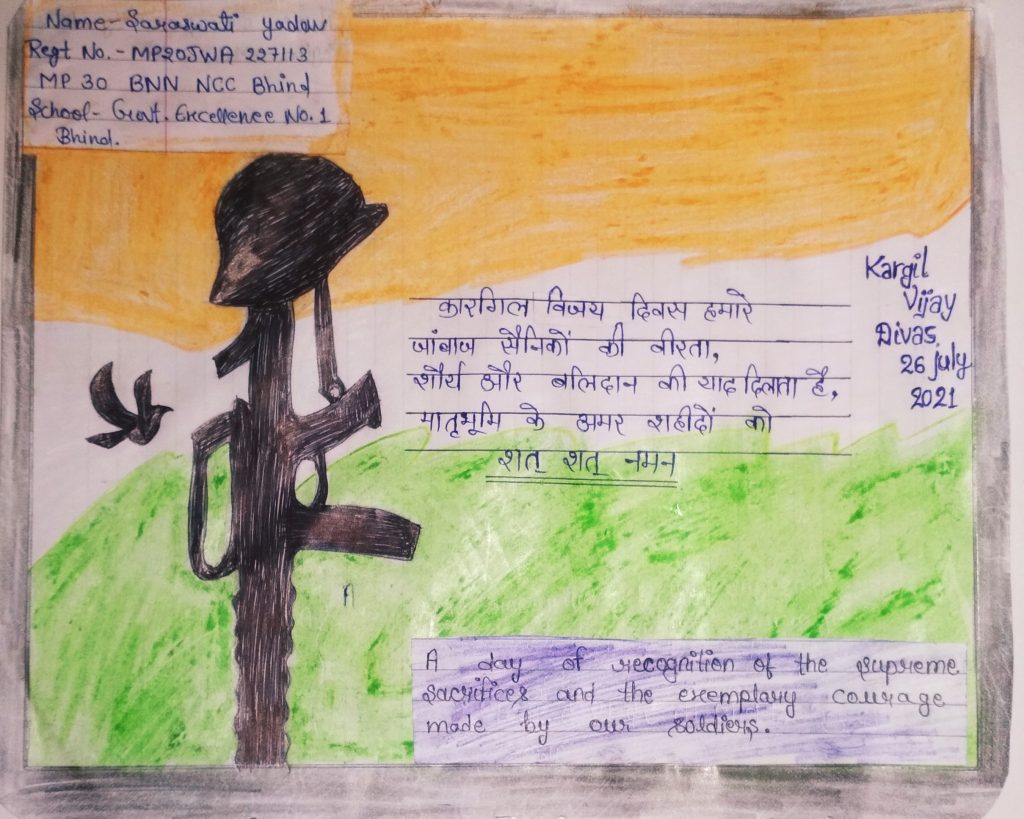 Name- Saraswati yadav
Regt No.- MP20JWA 227113
MP 30 BNN NCC Bhind
School- Govt. Excellence No. 1
Bhind.
कारगिल विजय दिवस हमारे
जांबाज सैनिकों की वीरता,
शौर्य और बलिदान की याद दिलाता है,
मातृभूमि के अमर शहीदों को
शत् शत् नमन
Kargil
Vijay
Divas,
26 july
2021
A
A day of recognition of the supreme
sacrifices and the exemplary courage
made by our soldiers.